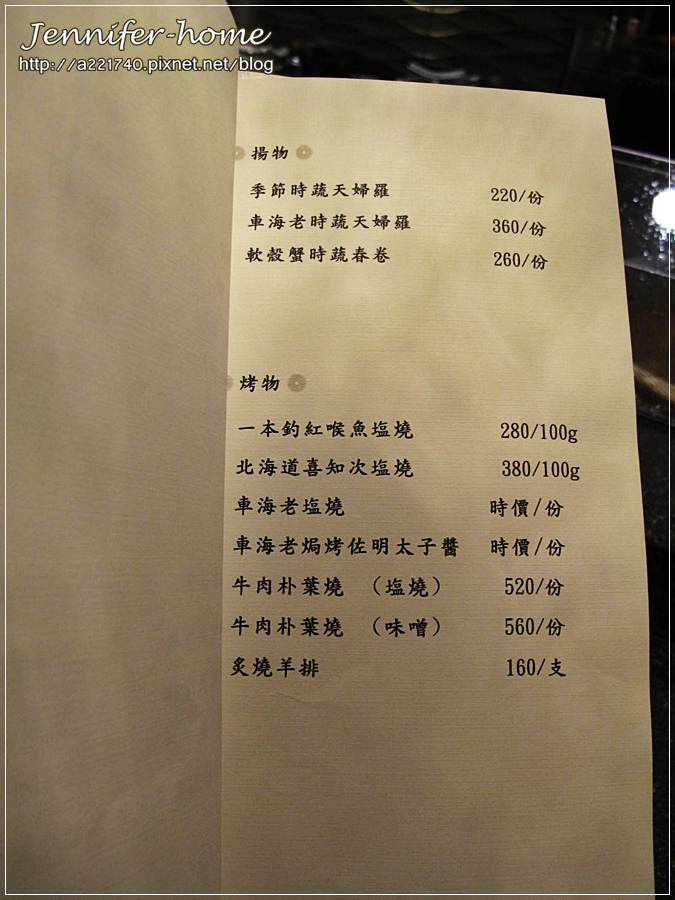 Jennifer-home
http://a221740.pixnet.net/blog
揚物
季節時蔬天婦羅 220/份
車海老時蔬天婦羅 360/份
軟殼蟹時蔬春卷 260/份
烤物
一本釣紅喉魚塩燒 280/100g
北海道喜知次塩燒 380/100g
車海老塩燒 時價/份
車海老焗烤佐明太子醬 時價/份
牛肉朴葉燒 （塩燒） 520/份
牛肉朴葉燒 （味噌） 560/份
炙燒羊排 160/支